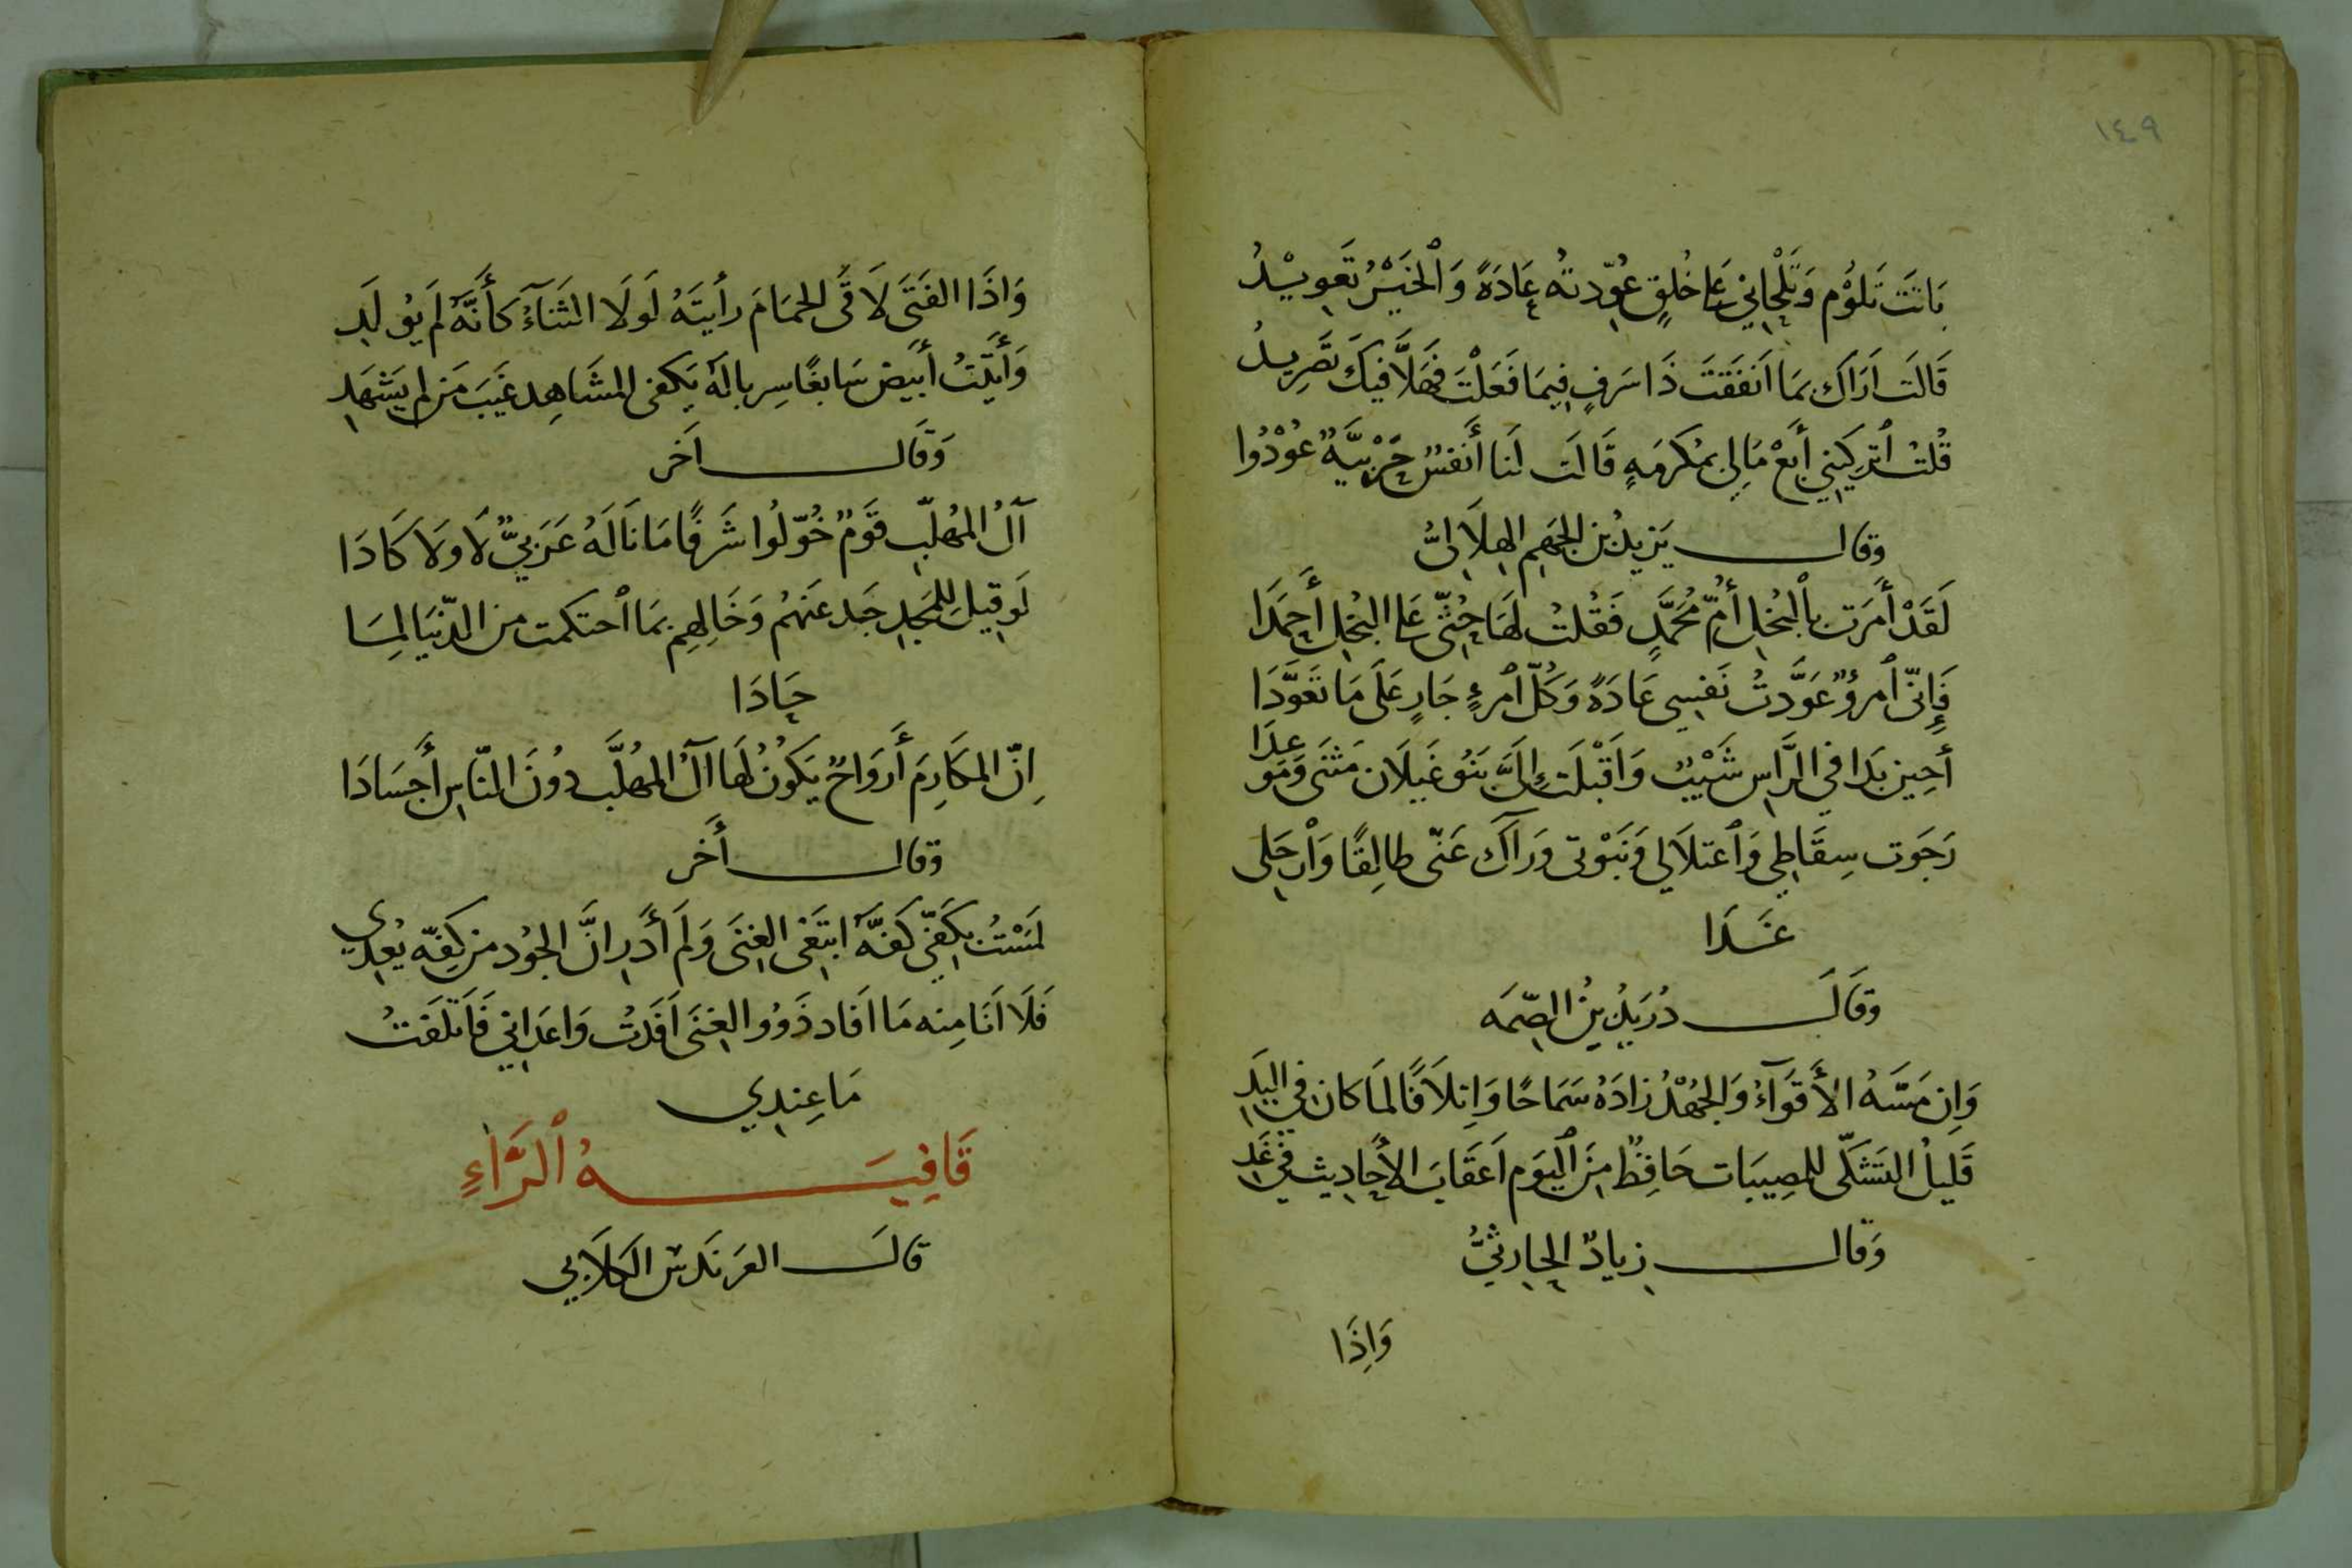 ١٤٩
بَاتَتَ تَلُوْم وَتَلْحَانِيْ عَلى خُلِقٍ عُوِّدتهُ عَادَةً وَٱلخَيْرُ تَعوِيْدُ
قَالَت اَرَاكَ بمَا اَنفَقتَ ذَا سَرفٍ فِيمَا فَعَلْتَ فَهَلَّا فيكَ تَصَرِيدُ
قُلتُ ٱتركِيني أَبعْ مَالِي بمَكرَمَةٍ قَالَت لَنا أَنفسٌ حَرْبيَّةٌ عُوْدُوا
وقال يَزيدُ بن الجَهِم الهِلَالىُّ
لَقَدْ أَمَرَت بِٱلبُخلِ أُمُّ مُحَمَّدٍ فَقُلتُ لَهَا حُثّى عَلى البُخلِ أَحمَدَا
فَإِنّى ٱمرؤٌ عَوَّدتُ نَفسِي عَادَةً وَكُلّ ٱمرءٍ جَارٍ عَلَى مَا تَعَوَّدَا
أحِين بَدَا في الرَّاسِ شَيْبٌ وَاَقْبَلَت إِلَىَّ بَنُو غَيلَان مَثنَى وَمَو
عِدَا
رَجَوت سِقَاطِي وَٱعتلَالي وَنَبْوتى وَرَآكِ عَنّى طالِقًا وَٱرحَلى
غَدَا
وقَالَ دُرَيدُ بنُ الصِّمَه
وَاِن مَسَّهُ الأَقوَآءُ وَالجَهْدُ زادَهُ سَمَاحًا وَاِتلَافًا لمَا كان في اليَدِ
قَليلُ التَشَكّى للمصِيبَات حَافِظٌ مِنَ ٱليَوم اَعقَابَ الأَحَادِيث في غَدِ
وَقال زيادٌ الحَارثيُّ
وَاِذَا
وَاذَا الفَتَى لَاقَى الحمَامَ رأيتَهُ لَولَا الثَنَآءُ كَأَنَّهُ لَم يُولَدِ
وَأَتَيْتُ أَبيَض سَابغًا سِربالَهُ يَكفى المشَاهِد غَيبَ مَن لم يَشهَدِ
وَقَال اَخر
آلُ المُهلّبِ قَومٌ خُوِّلُوا شَرفًا مَا نَالَهُ عَرَبيٌّ لَا وَلَا كَادَا
لَو قِيلَ لِلمَجدِ حَد عَنهُم وَخَالِهِم بمَا ٱحتكمت من الدّنيَا لمِا
حَادَا
اِنّ المكَارِمَ أَروَاحٌ يَكونُ لَهَا آلُ المُهلَّبِ دُونَ النّاسِ أَجسَادَا
وقال أَخر
لمَسْتُ بِكَفّي كَفَّهُ ابتَغى الغِنَى وَلَم أَدرِ انَّ الجُود من كَفِّهِ يُعدِي
فَلَا اَنَا مِنه مَا اَفَاد ذَوُو الغِنَى اَفَدتُ وَاعَدانِي فَاَتلَفتُ
مَا عِندِي
قَافِيَةُ ٱلرَّاءِ
قالَ العَرَندَس الكلَابي